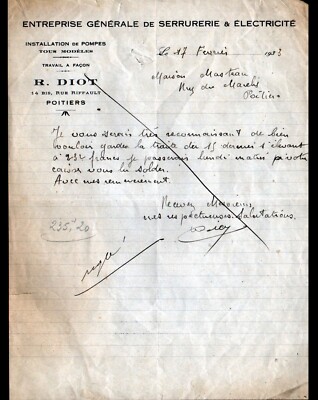 ENTREPRISE GÉNÉRALE DE SERRURERIE & ÉLECTRICITÉ
INSTALLATION DE POMPES
TOUS MODÈLES
TRAVAIL A FAÇON
R. DIOT
14 BIS, RUE RIFFAULT
POITIERS
Le 17 Février 193
Maison
Rue du Marché
Poitiers
Je vous serais très reconnaissant de bien
vouloir garder la traite de 15 dernier s'élevant
à 232 francs, je passerais lundi matin à votre
caisse vous la solder.
Avec mes remerciement.
Recevez Messieurs
mes respectueuses salutations.
Diot
235,20
réglé